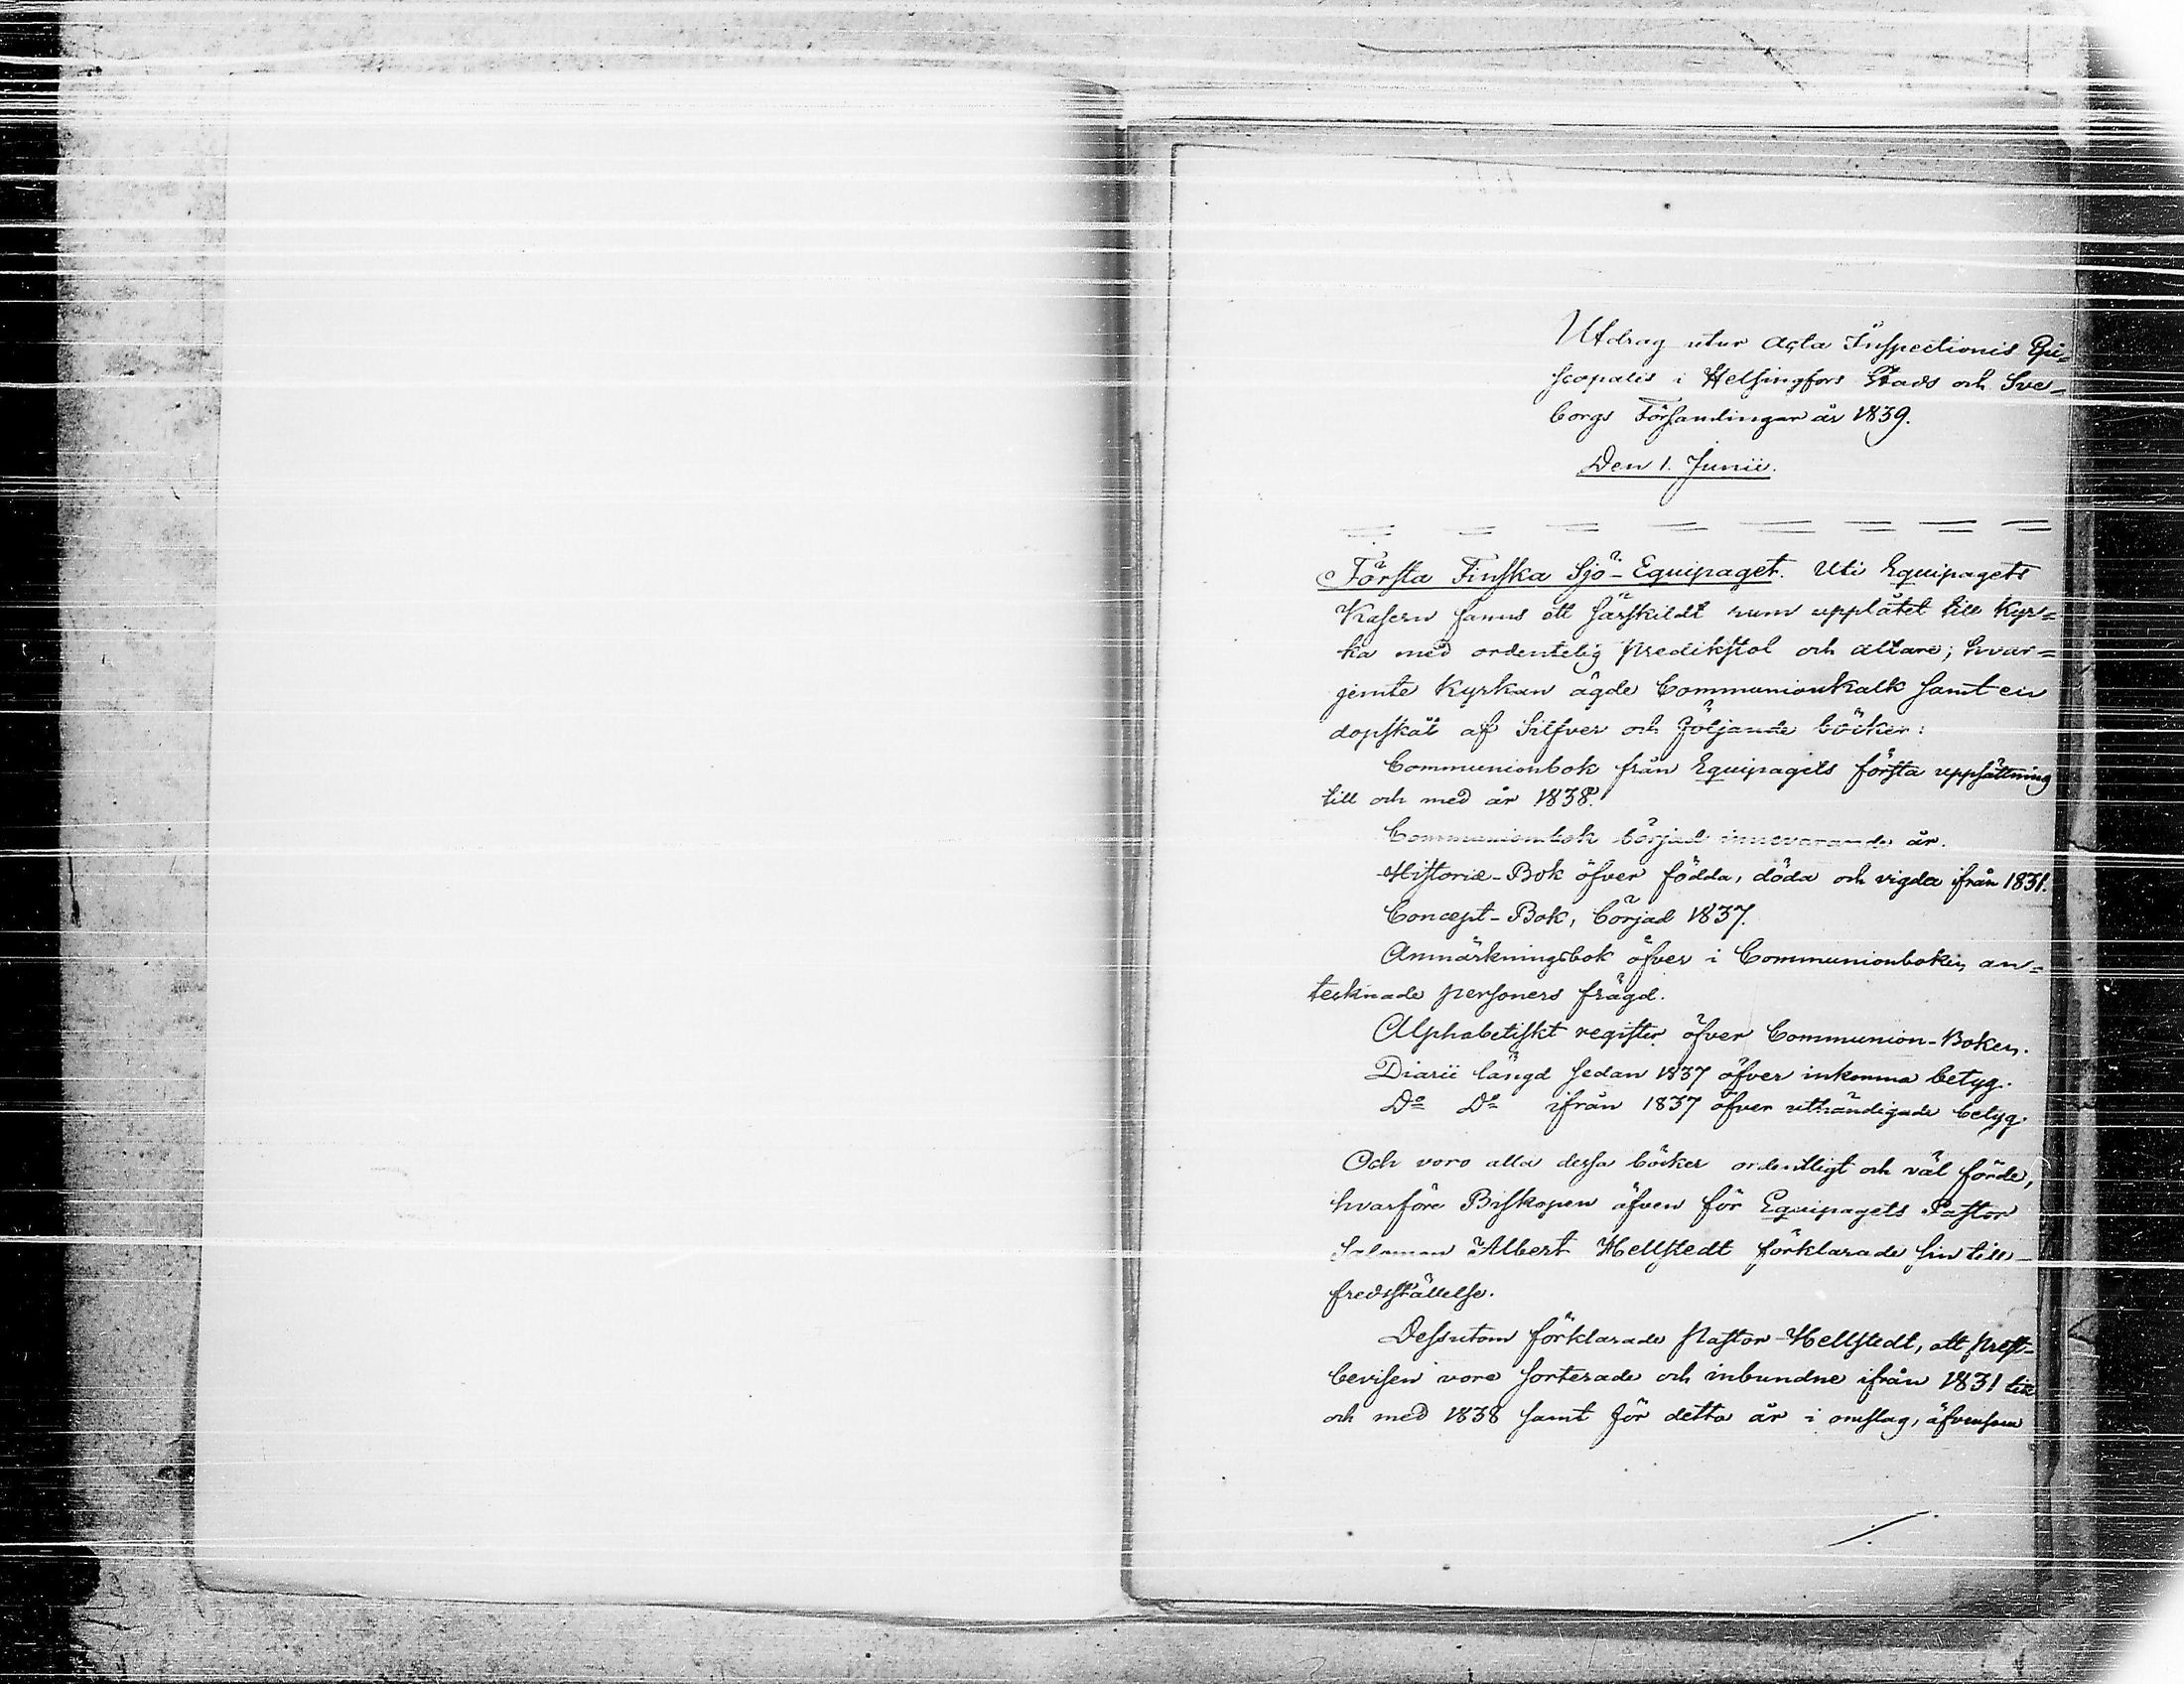 Utdrag utur Acta Inspectionis Epi=
scopalis i Helsingfors Stads och Svea=
borgs Församlingar år 1839.
Den 1. Junii.
Första Finska Sjö-Equipaget. Uti Equipagets
Kasern fanns ett särskildt rum upplåtet till Kyr=
ka med ordentelig predikstol och altare; hvar=
jemte Kyrkan ägde Communionkalk samt en
dopskål af Silfver och följande böcker:
Communionbok från Equipagets första uppsättning
till och med år 1838.
Communionbok börjad innevarande år.
Historiæ-Bok öfver födda, döda och vigda ifrån 1831.
Concept-Bok, börjad 1837.
Anmärkningsbok öfver i Communionboken an=
tecknade personers frägd.
Alphabetiskt register öfver Communion-Boken.
Diarii längd sedan 1837 öfver inkomna betyg.
Do Do ifrån 1837 öfver uthändigade betyg.
Och voro alla dessa böcker ordentligt och väl förde,
hvarföre Biskopen äfven för Equipagets Pastor
Salomon Albert Hellstedt förklarade sin till-
fredsställelse.
Dessutom förklarade Pastor Hellstedt, att prest-
bevisen voro sorterade och inbundne ifrån 1831 till
och med 1838 samt för detta år i omslag, äfvensom
./.